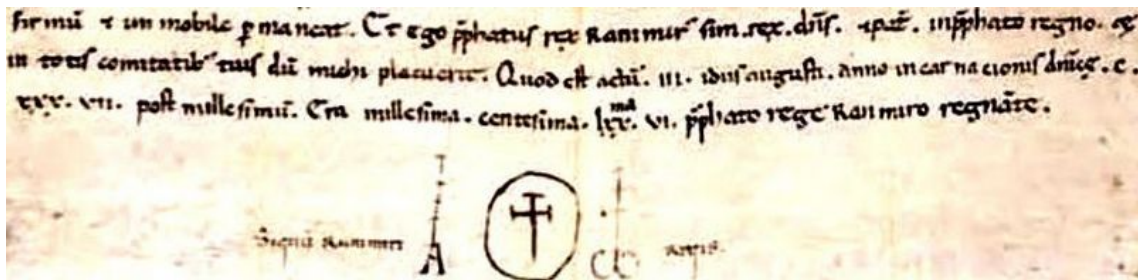 firmū ⁊ un mobile ꝑ maneat. Et ego p̄phatus rex Ranimir' sim. rex. dn̄s. ⁊ pat̄. in p̄phato regno. ⁊
in totis comitatib' tuis dū michi placuerit. Quod est actū. III. idus augusti. Anno incarnacionis dn̄icę. C.
xxx. vii. post millesimū. Era millesima. centesima. lxx.ma vi. p̄phato rege Ranimiro regnāte.
Signū Ranimiri A ω regis.